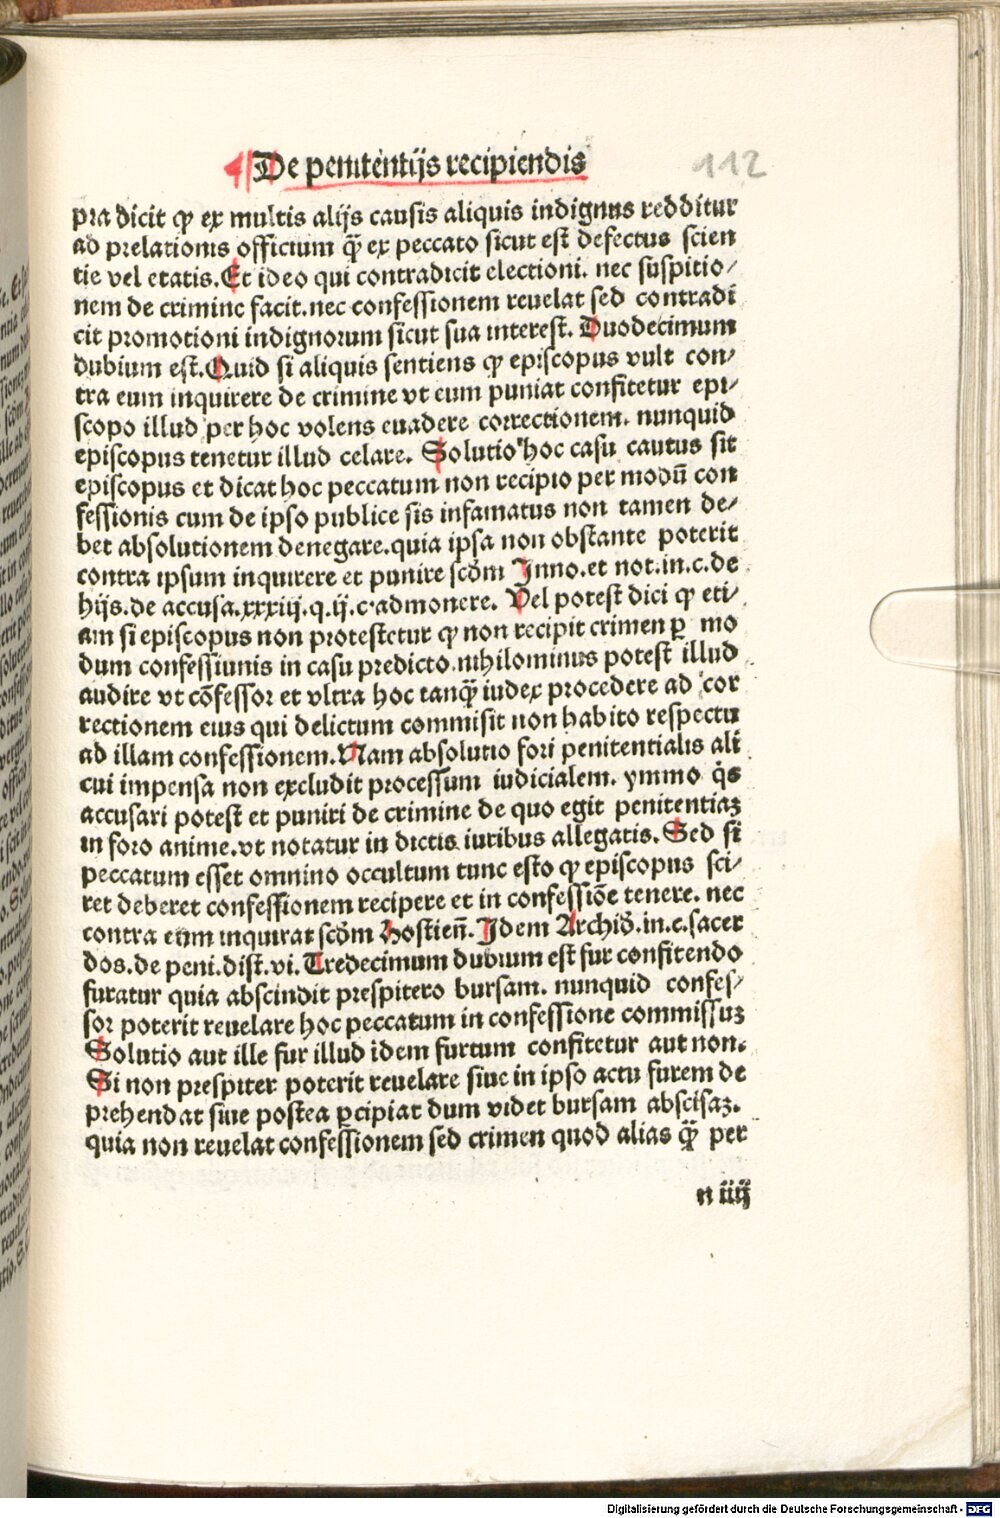 De penitentijs recipiendis
112
pra dicit ꝙ ex multis alijs causis aliquis indignus redditur
ad prelationis officium q̃ ex peccato sicut est defectus scien
tie vel etatis. Et ideo qui contradicit electioni. nec suspitio/
nem de crimine facit. nec confessionem reuelat sed contradi
cit promotioni indignorum sicut sua interest. Duodecimum
dubium est. Quid si aliquis sentiens ꝙ episcopus vult con/
tra eum inquirere de crimine vt eum puniat confitetur epi/
scopo illud per hoc volens euadere correctionem. nunquid
episcopus tenetur illud celare. Solutio hoc casu cautus sit
episcopus et dicat hoc peccatum non recipio per modū con
fessionis cum de ipso publice sis infamatus non tamen de/
bet absolutionem denegare. quia ipsa non obstante poterit
contra ipsum inquirere et punire scd̄m Inno. et not. in. c. de
hijs. de accusa. xxxiij. q. ij. c. admonere. Vel potest dici ꝙ eti/
am si episcopus non protestetur ꝙ non recipit crimen ꝑ mo
dum confessiunis in casu predicto. nihilominus potest illud
audire vt cōfessor et vltra hoc tanq̃ iudex procedere ad cor
rectionem eius qui delictum commisit non habito respectu
ad illam confessionem. Nam absolutio fori penitentialis ali
cui impensa non excludit processum iudicialem. ymmo q̇s
accusari potest et puniri de crimine de quo egit penitentiaꝫ
in foro anime. vt notatur in dictis iuribus allegatis. Sed si
peccatum esset omnino occultum tunc esto ꝙ episcopus sci/
ret deberet confessionem recipere et in confessiōe tenere. nec
contra eum inquirat scd̄m Hostien̄. Idem Archid̄. in. c. sacer
dos. de peni. dist. vi. Tredecimum dubium est fur confitendo
furatur quia abscindit prespitero bursam. nunquid confes/
sor poterit reuelare hoc peccatum in confessione commissuꝫ
Solutio aut ille fur illud idem furtum confitetur aut non.
Si non prespiter poterit reuelare siue in ipso actu furem de
prehendat siue postea ꝑcipiat dum videt bursam abscisaꝫ.
quia non reuelat confessionem sed crimen quod alias q̃ per
n iiij
Digitalisierung gefördert durch die Deutsche Forschungsgemeinschaft - DFG